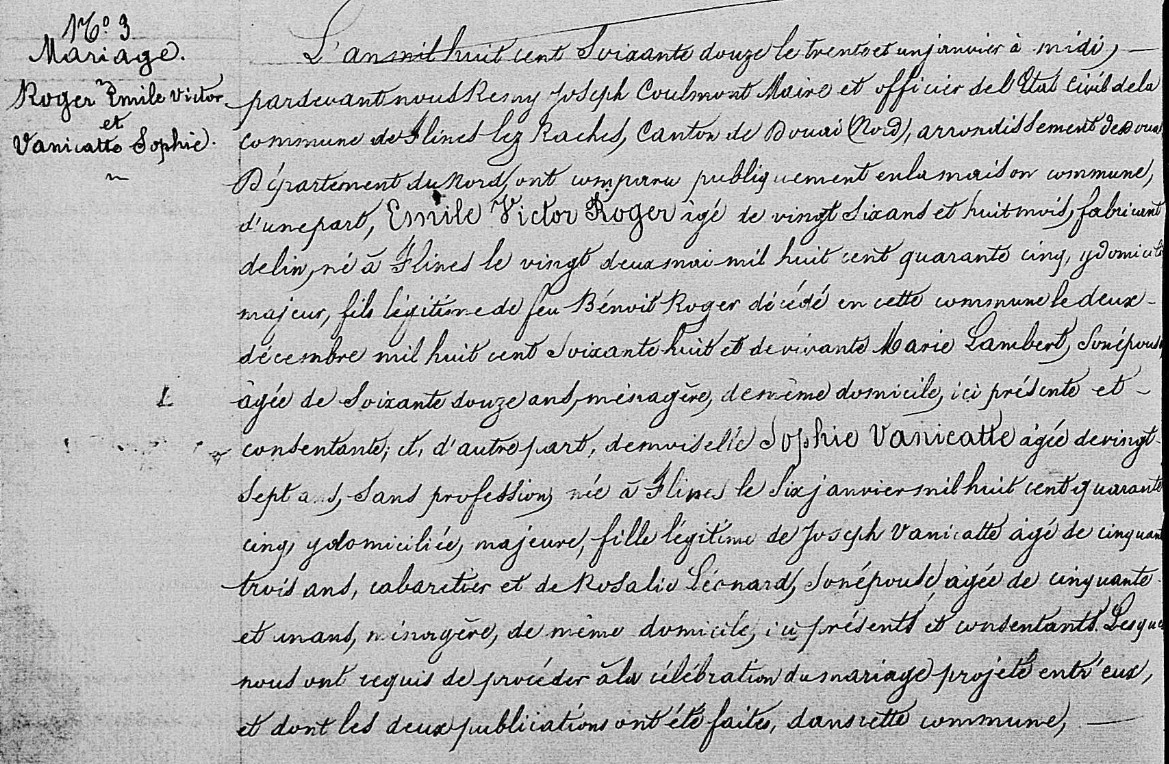 N° 3
Mariage.
Roger Emile Victor
et
Vanicatte Sophie.
L'an mil huit cent soixante douze le trente et un janvier à midi,
pardevant nous Remy Joseph Coulmont Maire et officier de l'Etat Civil de la
commune de Flines lez Raches, Canton de Douai (Nord), arrondissement de Douai
Département du Nord, ont comparu publiquement en la maison commune,
d'une part, Emile Victor Roger âgé de vingt six ans et huit mois, fabricant
de lin, né à Flines le vingt deux mai mil huit cent quarante cinq, y domicilié
majeur, fils légitime de feu Bénoit Roger décédé en cette commune le deux
décembre mil huit cent soixante huit et de vivante Marie Lambert, son épouse
âgée de soixante douze ans, ménagère, de même domicile, ici présente et
consentante; et, d'autre part, demoiselle Sophie Vanicatte âgée de vingt
sept ans, sans profession, née à Flines le six janvier mil huit cent quarante
cinq, y domiciliée, majeure, fille légitime de Joseph Vanicatte âgé de cinquante
trois ans, cabaretier et de Rosalie Léonard, son épouse, âgée de cinquante
et un ans, ménagère, de même domicile, ici présents et consentants. Lesquels
nous ont requis de procéder à la célébration du mariage projeté entr'eux,
et dont les deux publications ont été faites, dans cette commune,